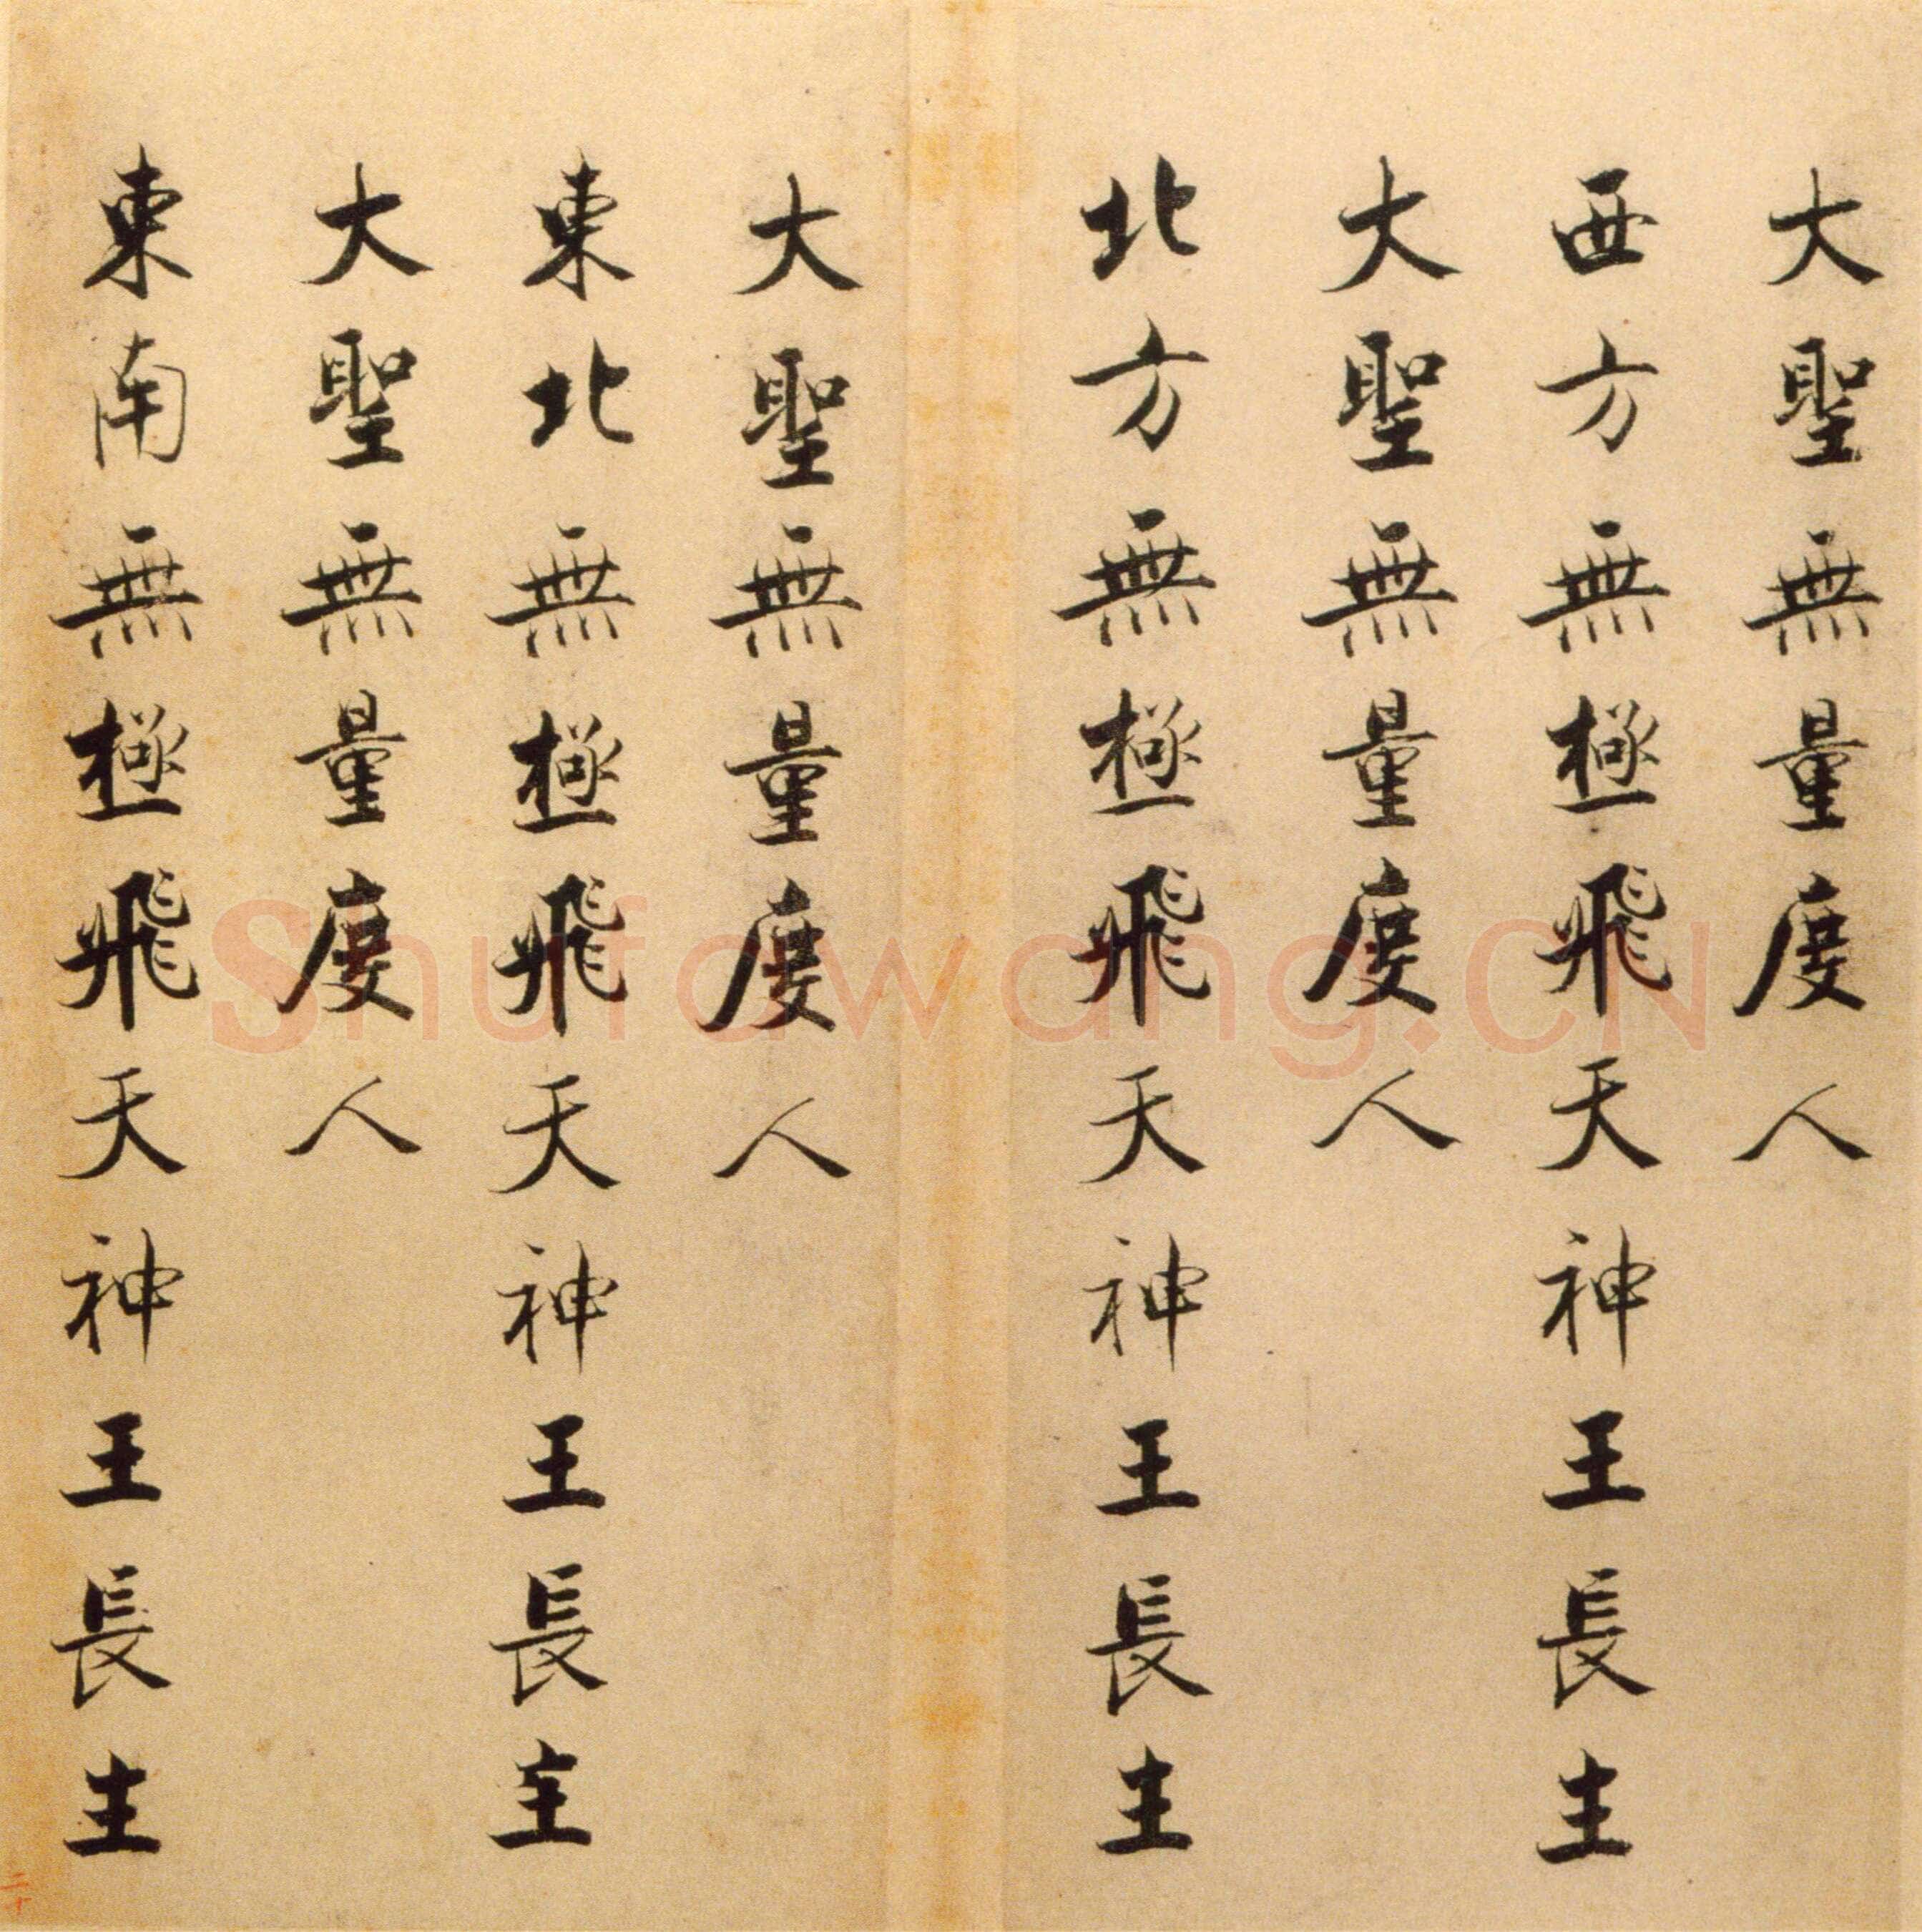 大聖無量度人
西方無極飛天神王長主
大聖無量度人
北方無極飛天神王長主
大聖無量度人
東北無極飛天神王長主
大聖無量度人
東南無極飛天神王長主
二十
Shufawang.CN